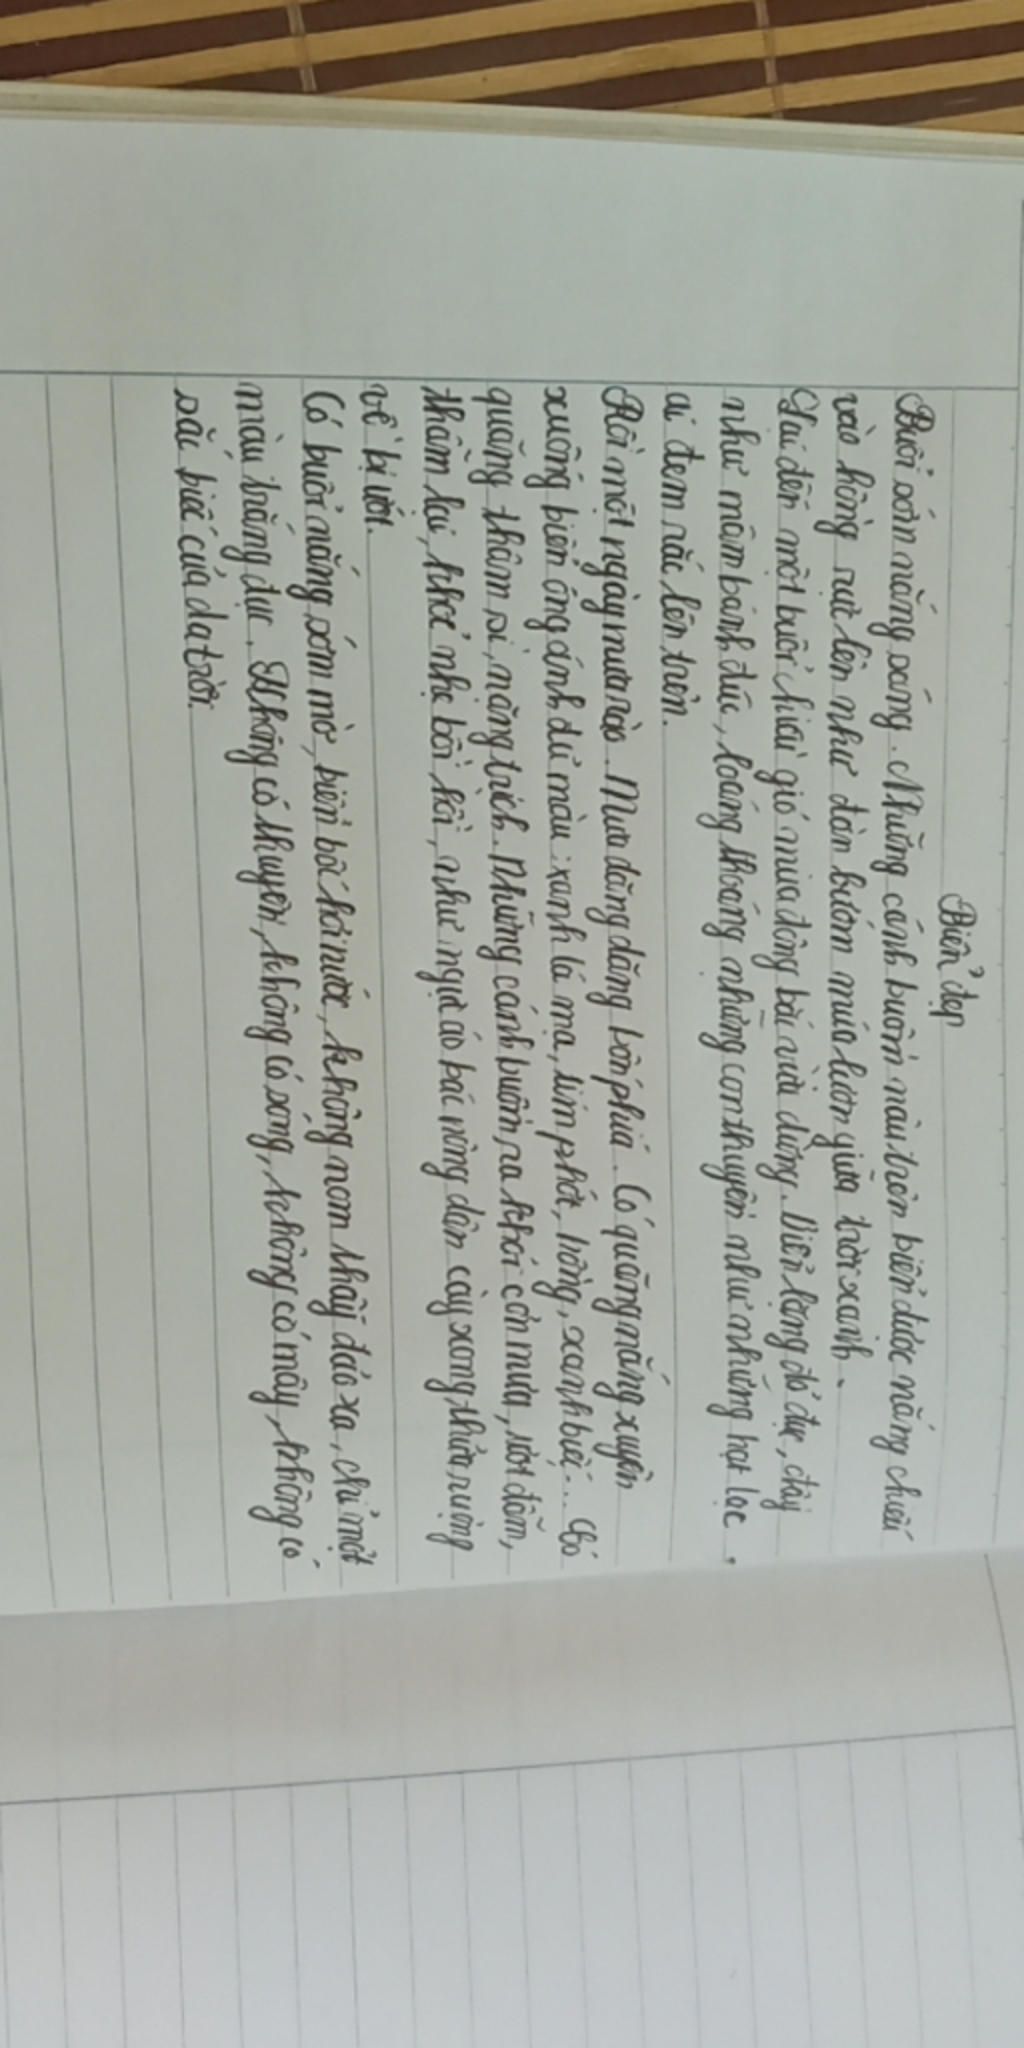 Biển đẹp
Buổi sớm nắng sáng. Những cánh buồm nâu trên biển được nắng chiếu
vào hồng rực lên như đàn bướm múa lượn giữa trời xanh.
Lại đến một buổi chiều gió mùa đông bắc vừa dừng. Biển lặng đỏ đục, đầy
như mâm bánh đúc, loáng thoáng những con thuyền như những hạt lạc,
ai đem rắc lên trên.
Rồi một ngày mưa rào. Mưa dăng dăng bốn phía. Có quãng nắng xuyên
xuống biển óng ánh đủ màu: xanh lá mạ, tím phớt, hồng, xanh biếc... Có
quãng thâm sì, nặng trịch. Những cánh buồm ra khỏi cơn mưa, ướt đẫm,
thẫm lại, khoẻ nhẹ bồi hồi, như ngực áo bác nông dân cày xong thửa ruộng
về bị ướt.
Có buổi nắng sớm mờ, biển bốc hơi nước, không nom thấy đảo xa, chỉ một
màu trắng đục. Không có thuyền, không có sóng, không có mây, không có
sắc biếc của da trời.